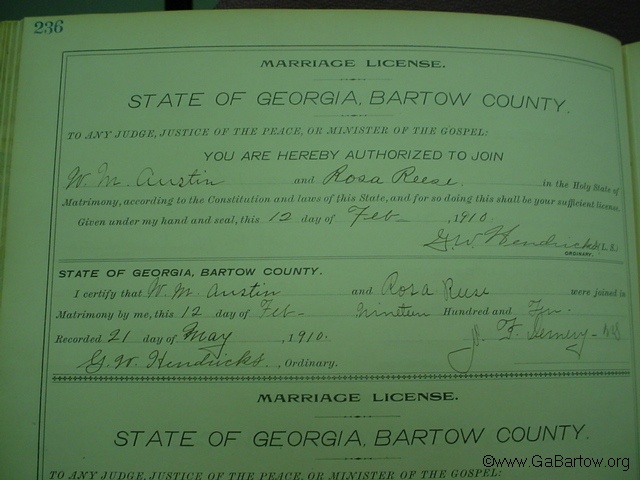 236
MARRIAGE LICENSE.
STATE OF GEORGIA, BARTOW COUNTY.
TO ANY JUDGE, JUSTICE OF THE PEACE, OR MINISTER OF THE GOSPEL:
YOU ARE HEREBY AUTHORIZED TO JOIN
W. M. Austin and Rosa Reese, in the Holy State of
Matrimony, according to the Constitution and laws of this State, and for so doing this shall be your sufficient license.
Given under my hand and seal, this 12 day of Feb , 1910.
G. W. Hendricks (L. S.)
ORDINARY.
STATE OF GEORGIA, BARTOW COUNTY.
I certify that W. M. Austin and Rosa Reese were joined in
Matrimony by me, this 12 day of Feb Nineteen Hundred and Ten.
Recorded 21 day of May , 1910. F.
G. W. Hendricks , Ordinary.
MARRIAGE LICENSE.
STATE OF GEORGIA, BARTOW COUNTY.
TO ANY JUDGE, JUSTICE OF THE PEACE, OR MINISTER OF THE GOSPEL:
©www.GaBartow.org